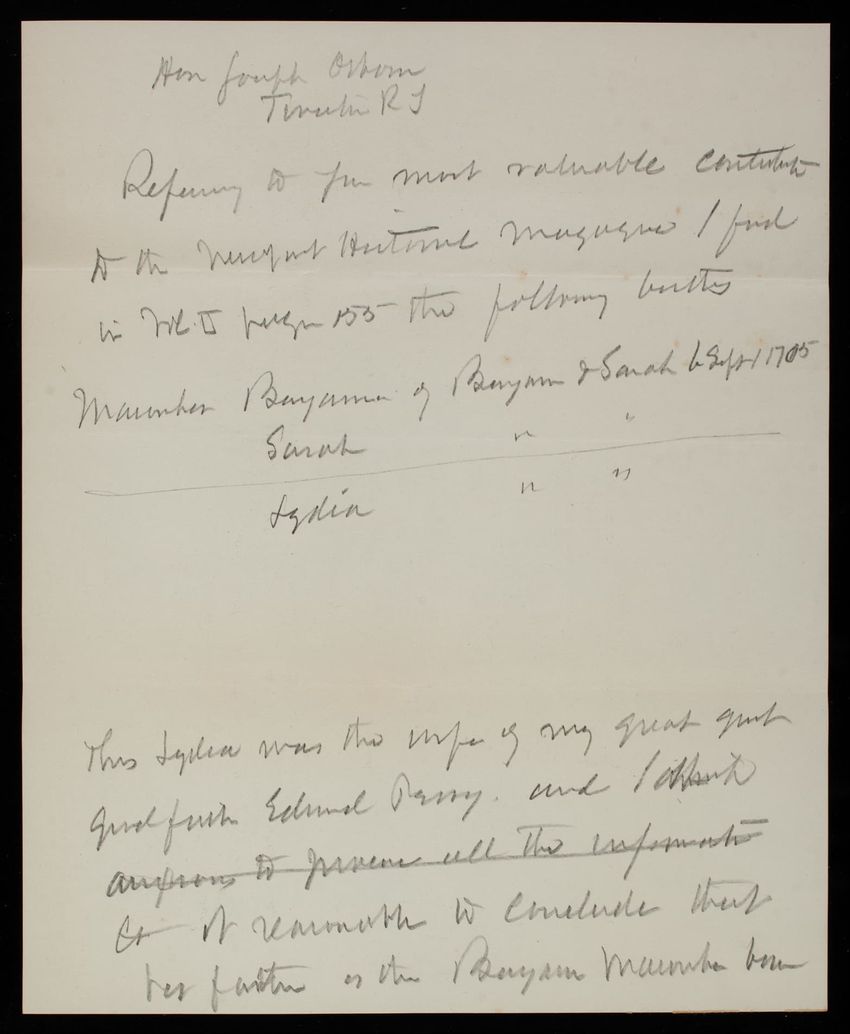 Hon Joseph Osborn
Tiverton R I
Referring to your most valuable contribution
to the Newport Historical Magazine I find
in Vol. II page 155 the following births
Macomber Benjamin of Benjam & Sarah b Sept 1 1705
Sarah " "
Lydia " "
This Lydia was the wife of my great great
Grandfather Edmund Perry. and I think
anxious to procure all the information
it reasonable to conclude that
her father is the Benjam Macomber born